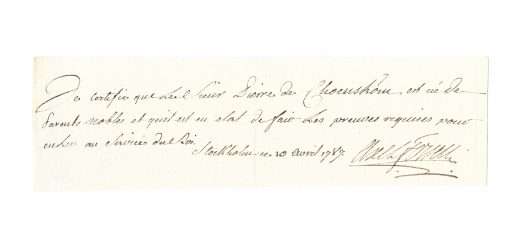 Je certifie que Le Sieur Pierre de est né de
Parents nobles et qu'il est en etat de fair Les preuves requises pour
entrer au Service du Roi.
Stockholm ce 10 Avril 1787.